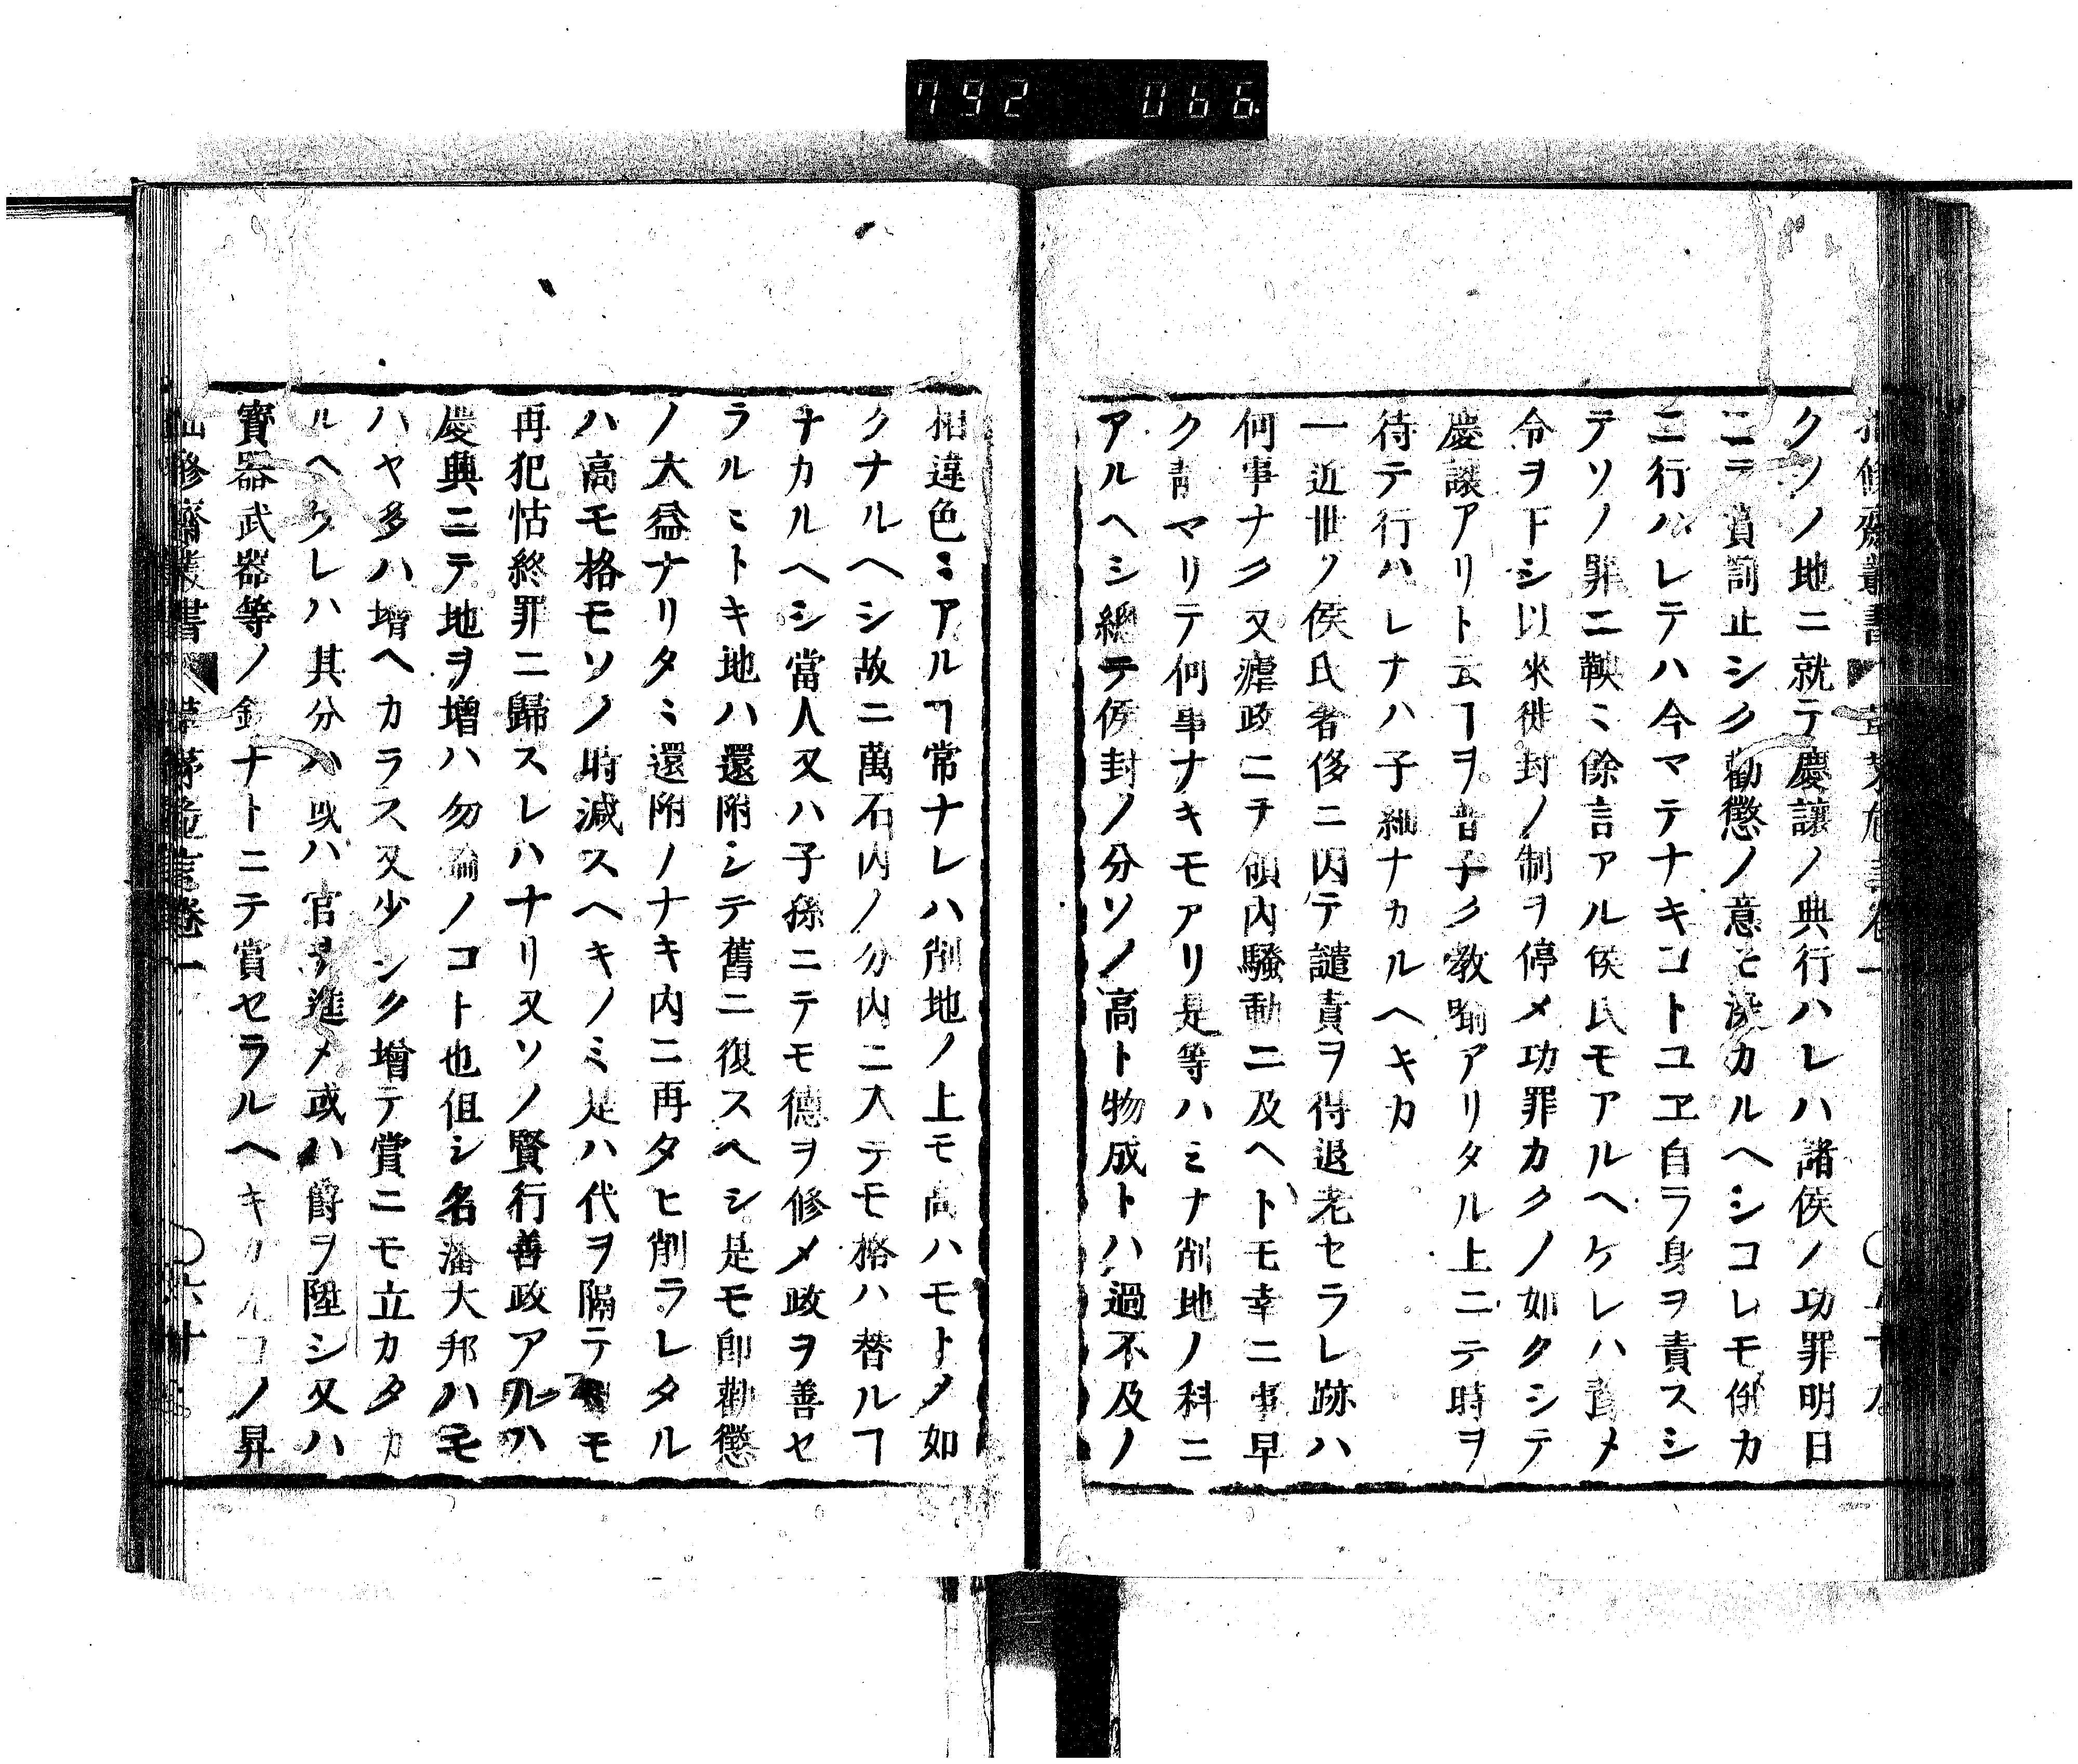 792 066
クソノ地ニ就テ慶讓ノ典行ハレハ諸侯ノ功罪明日
ニテ賞罰正シク勸懲ノ意モ深カルヘシコレモ俄カ
ニ行ハレテハ今マテナキコトユヱ自ラ身ヲ責スシ
テソノ罪ニ鞅ミ餘言アル侯氏モアルヘケレハメ
令ヲ下シ以來徙封ノ制ヲ停メ功罪カクノ如クシテ
慶讓アリト云ヿヲ昔子ク敎喻アリタル上ニテ時ヲ
待テ行ハレナハ子細ナカルヘキカ
一近世ノ侯氏奢侈ニ因テ譴責ヲ得退老セラレ跡ハ
何事ナク又瘧政ニヲ領內騷動ニ及ヘトモ幸ニ事早
ク靑マリテ何事ナキモアリ是等ハミナ削地ノ科ニ
アルヘシ總テ侯封ノ分ソノ高ト物成トハ過不及ノ
相違色ミアルヿ常ナレハ削地ノ上モ高ハモトノ如
クナルヘシ故ニ萬石內ノ分內ニ入テモ格ハ替ルヿ
ナカルヘシ當人又ハ子孫ニテモ德ヲ修メ政ヲ善セ
ラルミトキ地ハ還附シテ舊ニ復スヘシ是モ卽勸懲
ノ大益ナリタミ還附ノナキ內ニ再タヒ削ラレタル
ハ高モ格モソノ時減スヘキノミ是ハ代ヲ隔テモ
再犯怙終罪ニ歸スレハナリ又ソノ賢行善政アルハ
慶典ニテ地ヲ增ハ勿論ノコト也伹シ名藩大邦ハモ
ハヤ多ハ增ヘカラス又少シク增テ賞ニモ立カタカ
ルヘケレハ其分ハ或ハ官ヲ進メ或ハ爵ヲ陞シ又ハ
寶器武器等ノ錫ナトニテ賞セラルヘキカコノ昇
修齋叢書 草茅危言卷一 〇六十